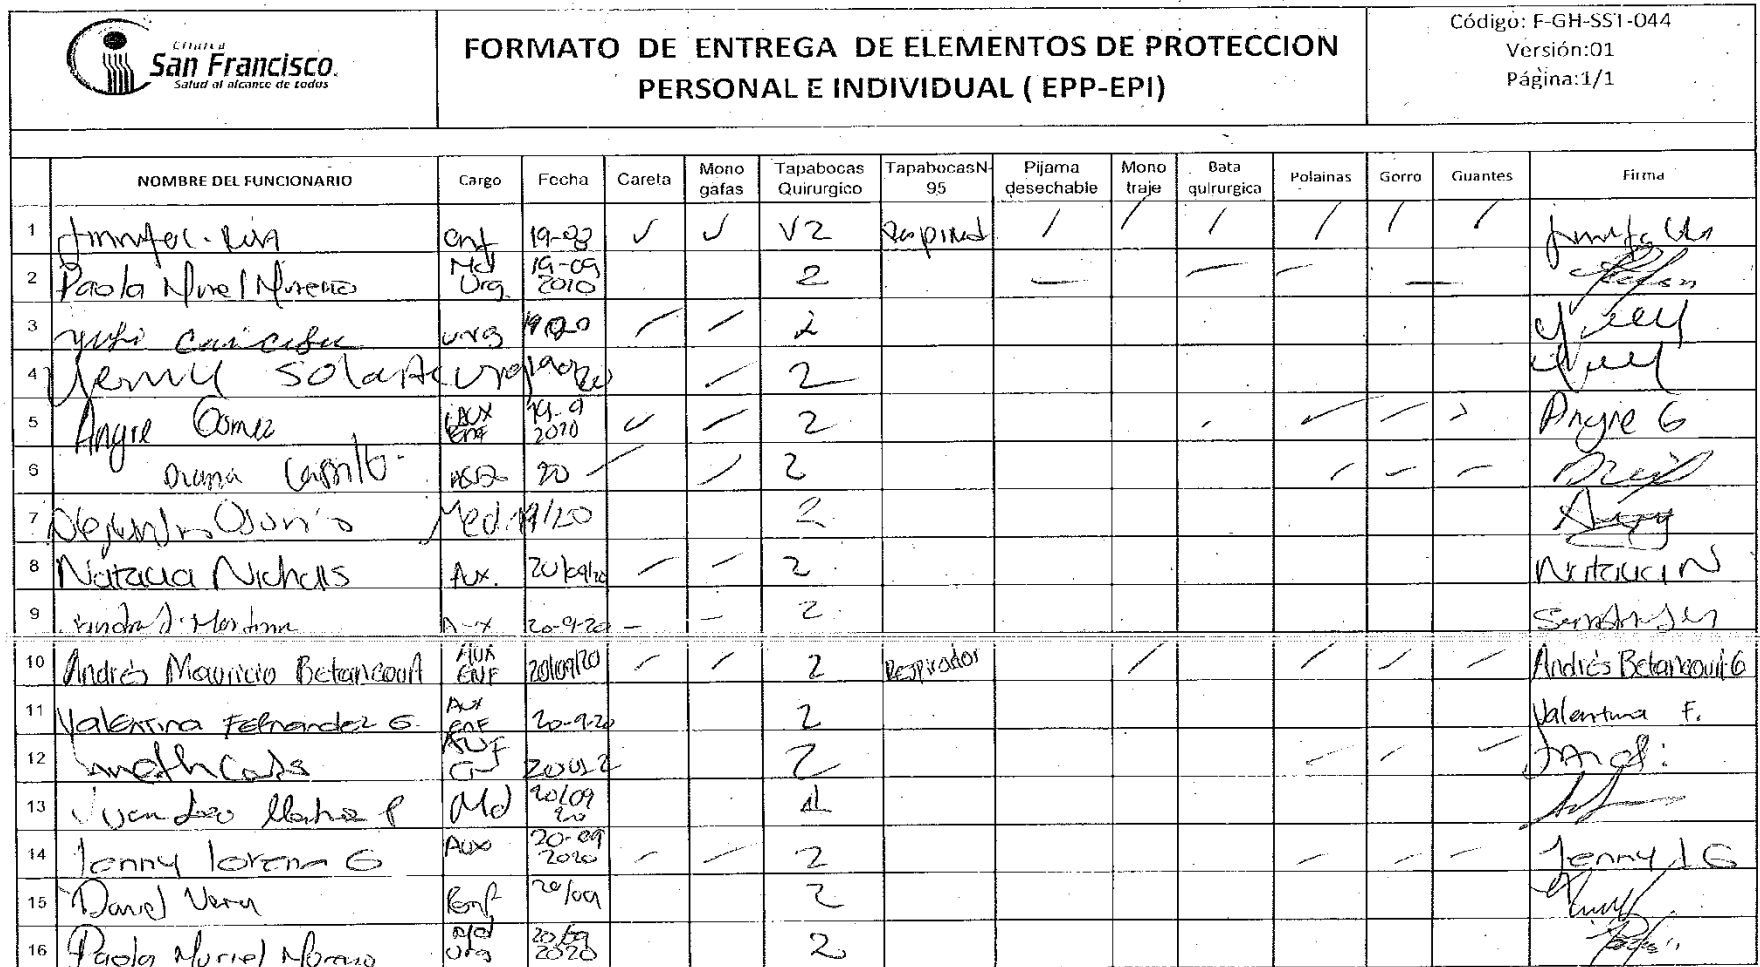 Clínica
San Francisco.
Salud al alcance de todos
FORMATO DE ENTREGA DE ELEMENTOS DE PROTECCION
PERSONAL E INDIVIDUAL ( EPP-EPI)
Código: F-GH-SST-044
Versión:01
Página:1/1
NOMBRE DEL FUNCIONARIO Cargo Fecha Careta Mono gafas Tapabocas Quirurgico TapabocasN-95 Pijama desechable Mono traje Bata quirurgica Polainas Gorro Guantes Firma
1 Enf 19-09 ✓ ✓ ✓2 Respirad / / / / / /
2 Paola Muriel Moreno Md Urg. 19-09 2020 2
3 urg 2
4 Yenny Solarte urg 2
5 Angie Gomez Aux Enf 19-9 2020 2 Angie G
6 Diana Castillo 20 2
7 Osorio Med. 19/20 2
8 Natalia Nicholls Aux. 20/09/20 2 Natalia N
9 Aux 20-9-20 2
10 Andrés Mauricio Betancourt AUX ENF 20/09/20 2 Respirador Andrés Betancourt G
11 Valentina Fernandez G. Aux enf 20-9-20 2 Valentina F.
12 2
13 Juan Md 20/09 20 1
14 Jenny Lorena G Aux 20-09 2020 2 Jenny L G
15 Daniel Vera Enf 20/09 2
16 Paola Muriel Moreno Md Urg 20/09 2020 2